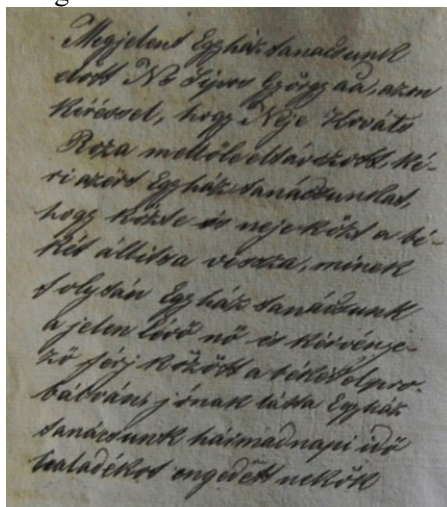 Megjelent Egyház tanácsunk
elött Ns György aa, azon
kéréssel, hogy Neje Horváth
Roza mellöle eltávozott ké-
ri azért Egyház tanácsunkat,
hogy közte és neje közt a bé-
két állitsa vissza, minek
folytán Egyház tanácsunk
a jelen lévö nö és kérvénye-
zö férj között a békét elpro-
bálván; jónak látta Egyház
tanácsunk hármadnapi idö
haladékot engedett nekök